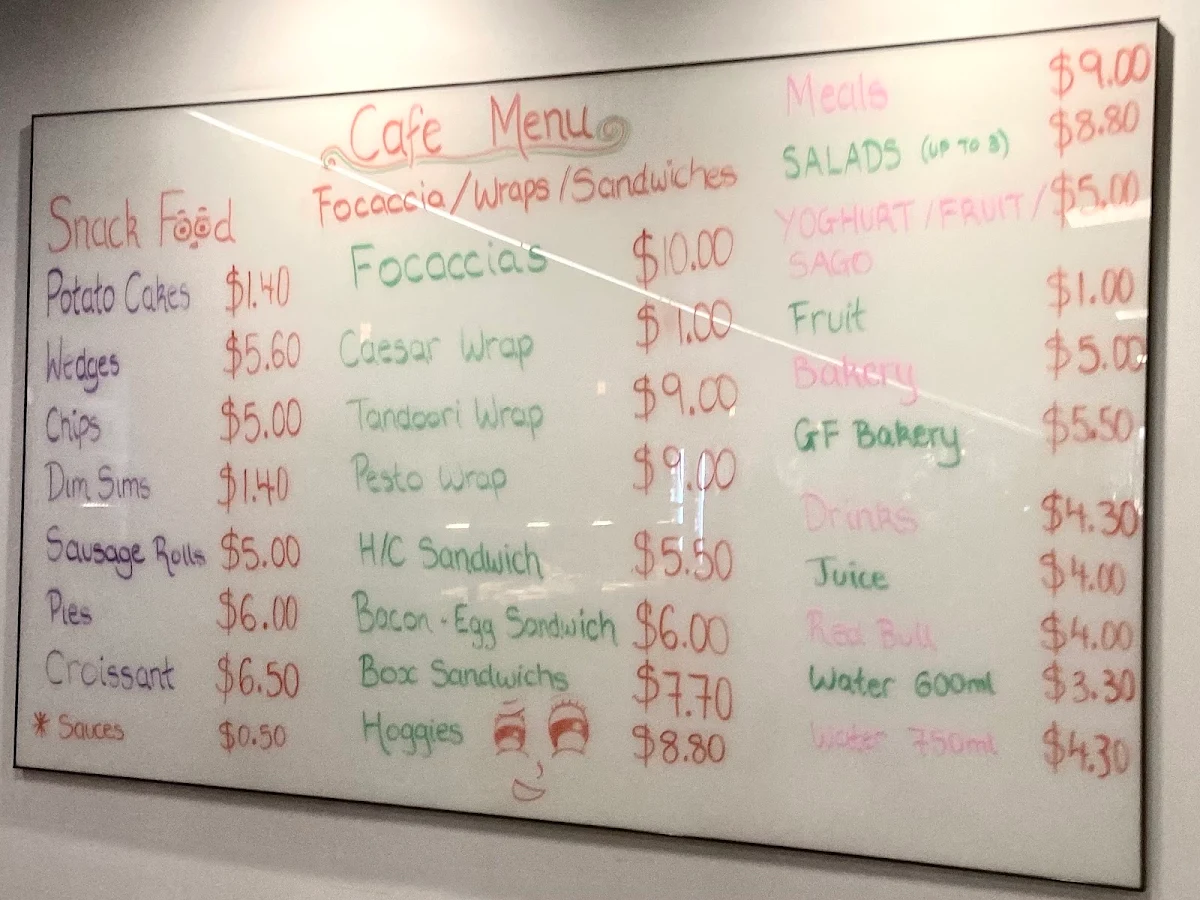 Cafe Menu
Snack Food
Potato Cakes $1.40
Wedges $5.60
Chips $5.00
Dim Sims $1.40
Sausage Rolls $5.00
Pies $6.00
Croissant $6.50
* Sauces $0.50
Focaccia/Wraps/Sandwiches
Focaccias $10.00
Caesar Wrap $1.00
Tandoori Wrap $9.00
Pesto Wrap $9.00
H/C Sandwich $5.50
Bacon · Egg Sandwich $6.00
Box Sandwichs $7.70
Hoggies $8.80
Meals $9.00
SALADS (UP TO 3) $8.80
YOGHURT/FRUIT/ $5.00
SAGO
Fruit $1.00
Bakery $5.00
GF Bakery $5.50
Drinks $4.30
Juice $4.00
Red Bull $4.00
Water 600ml $3.30
Water 750ml $4.30